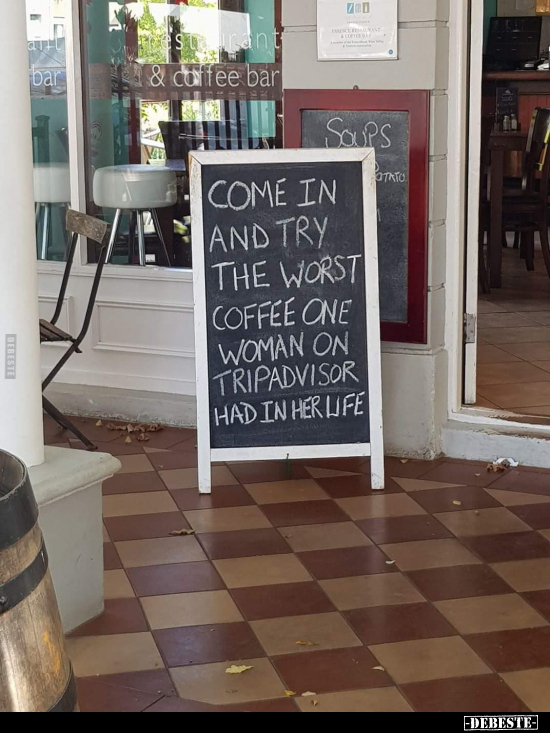 restaurant
bar
& coffee bar
SOUPS
COME IN
AND TRY
THE WORST
COFFEE ONE
WOMAN ON
TRIPADVISOR
HAD IN HER LIFE
DEBESTE
-DEBESTE-